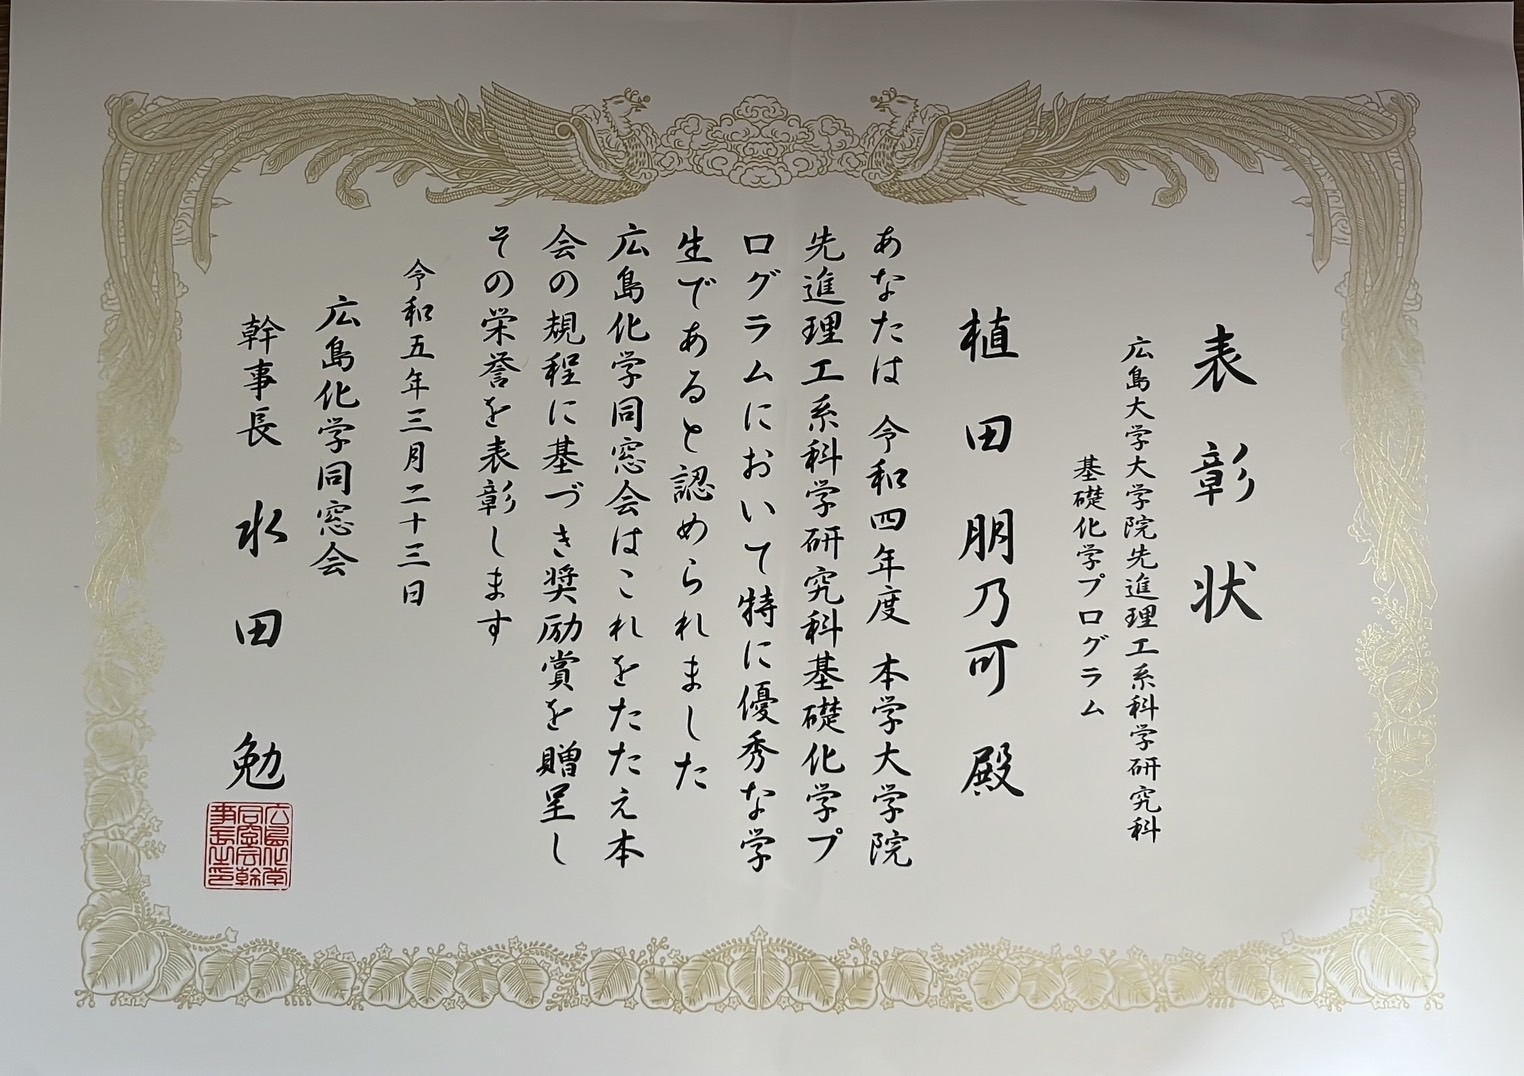 表彰状
広島大学大学院先進理工系科学研究科
基礎化学プログラム
植田朋乃可 殿
あなたは 令和四年度 本学大学院
先進理工系科学研究科基礎化学プ
ログラムにおいて特に優秀な学
生であると認められました
広島化学同窓会はこれをたたえ本
会の規程に基づき奨励賞を贈呈し
その栄誉を表彰します
令和五年三月二十三日
広島化学同窓会
幹事長 水田 勉
広島化学
同窓会幹
事長之印